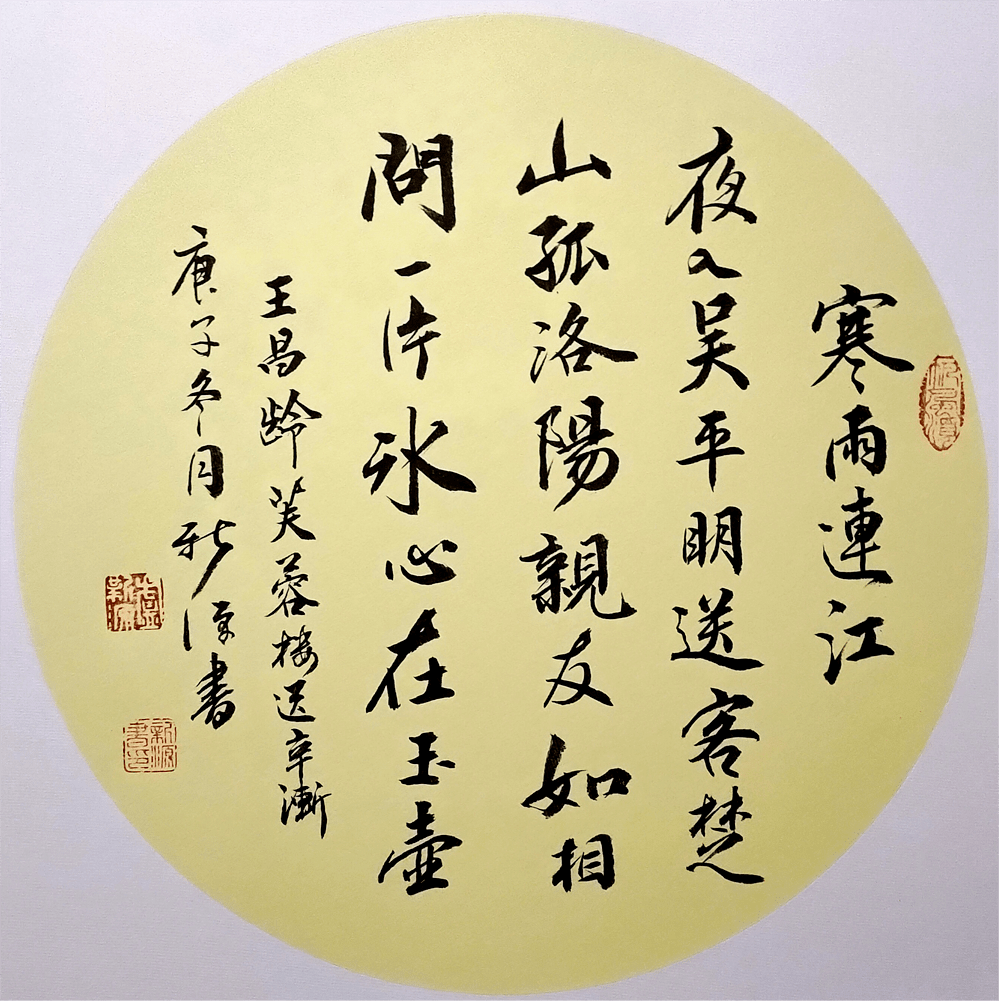 寒雨連江
夜入吴平明送客楚
山孤洛陽親友如相
問一片氷心在玉壺
王昌齡芙蓉樓送辛漸
庚子冬月新源書
新源書印